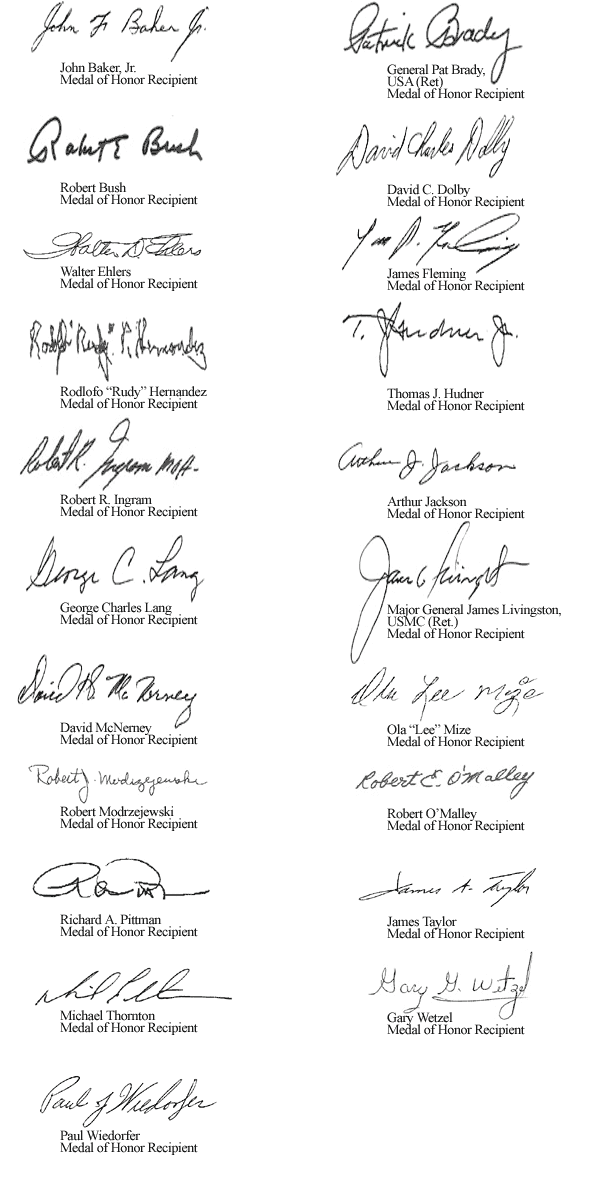 John F Baker Jr.
John Baker, Jr.
Medal of Honor Recipient
Patrick Brady
General Pat Brady,
USA (Ret)
Medal of Honor Recipient
Robert E Bush
Robert Bush
Medal of Honor Recipient
David Charles Dolby
David C. Dolby
Medal of Honor Recipient
Walter D. Ehlers
Walter Ehlers
Medal of Honor Recipient
James Fleming
Medal of Honor Recipient
Rodolfo "Rudy" P. Hernandez
Rodlofo “Rudy” Hernandez
Medal of Honor Recipient
T. J. Hudner Jr.
Thomas J. Hudner
Medal of Honor Recipient
Robert R. Ingram MOH-
Robert R. Ingram
Medal of Honor Recipient
Arthur J. Jackson
Arthur Jackson
Medal of Honor Recipient
George C. Lang
George Charles Lang
Medal of Honor Recipient
Major General James Livingston,
USMC (Ret.)
Medal of Honor Recipient
David H. McNerney
David McNerney
Medal of Honor Recipient
Ola Lee Mize
Ola “Lee” Mize
Medal of Honor Recipient
Robert J. Modrzejewski
Robert Modrzejewski
Medal of Honor Recipient
Robert E. O'Malley
Robert O’Malley
Medal of Honor Recipient
Richard A. Pittman
Medal of Honor Recipient
James A. Taylor
James Taylor
Medal of Honor Recipient
Michael Thornton
Medal of Honor Recipient
Gary G. Wetzel
Gary Wetzel
Medal of Honor Recipient
Paul J Wiedorfer
Paul Wiedorfer
Medal of Honor Recipient